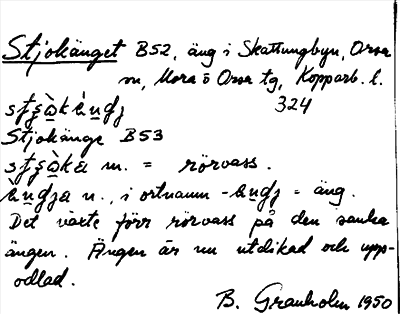 Stjokänget B52, äng i Skattungbyn, Orsa
sn, Mora o Orsa tg, Kopparb. l.
324
Stjokänge B53
m. = rörvass.
n., i ortnamn = äng.
Det växte förr rörvass på den sanka
ängen. Ängen är nu utdikad och upp-
odlad.
B. Granholm 1950